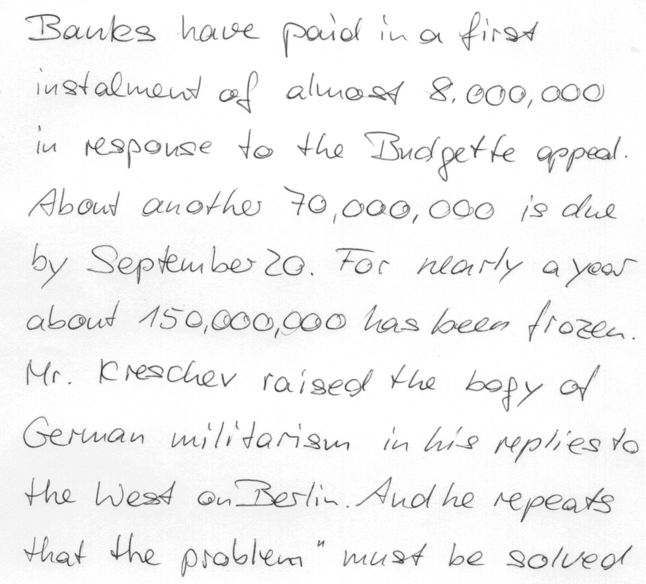 Banks have paid in a first
instalment of almost 8,000,000
in response to the Budgette appeal.
About another 70,000,000 is due
by September 20. For nearly a year
about 150,000,000 has been frozen.
Mr. Kreschev raised the bogy of
German militarism in his replies to
the West on Berlin. And he repeats
that the problem " must be solved